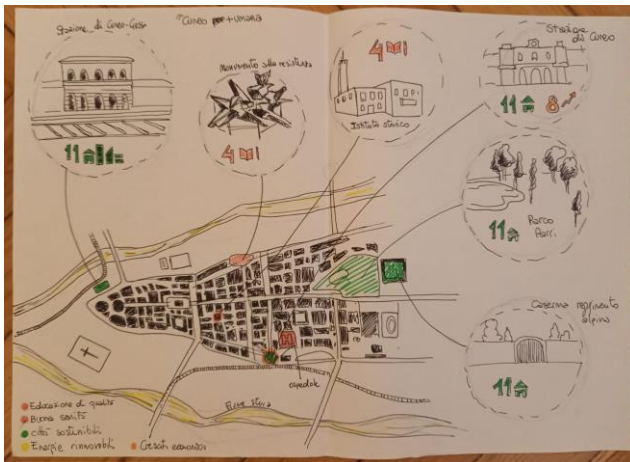 Stazione di Cuneo-Gesso
"Cuneo + umana
Monumento alla resistenza
4
11
4
Istituto storico
Stazione
di Cuneo
11
8
Parco
Parri
11
Caserma reggimento
alpino
11
ospedale
Fiume Stura
Educazione di qualità
Buona sanità
città sostenibili
Energie rinnovabili
Crescita economica